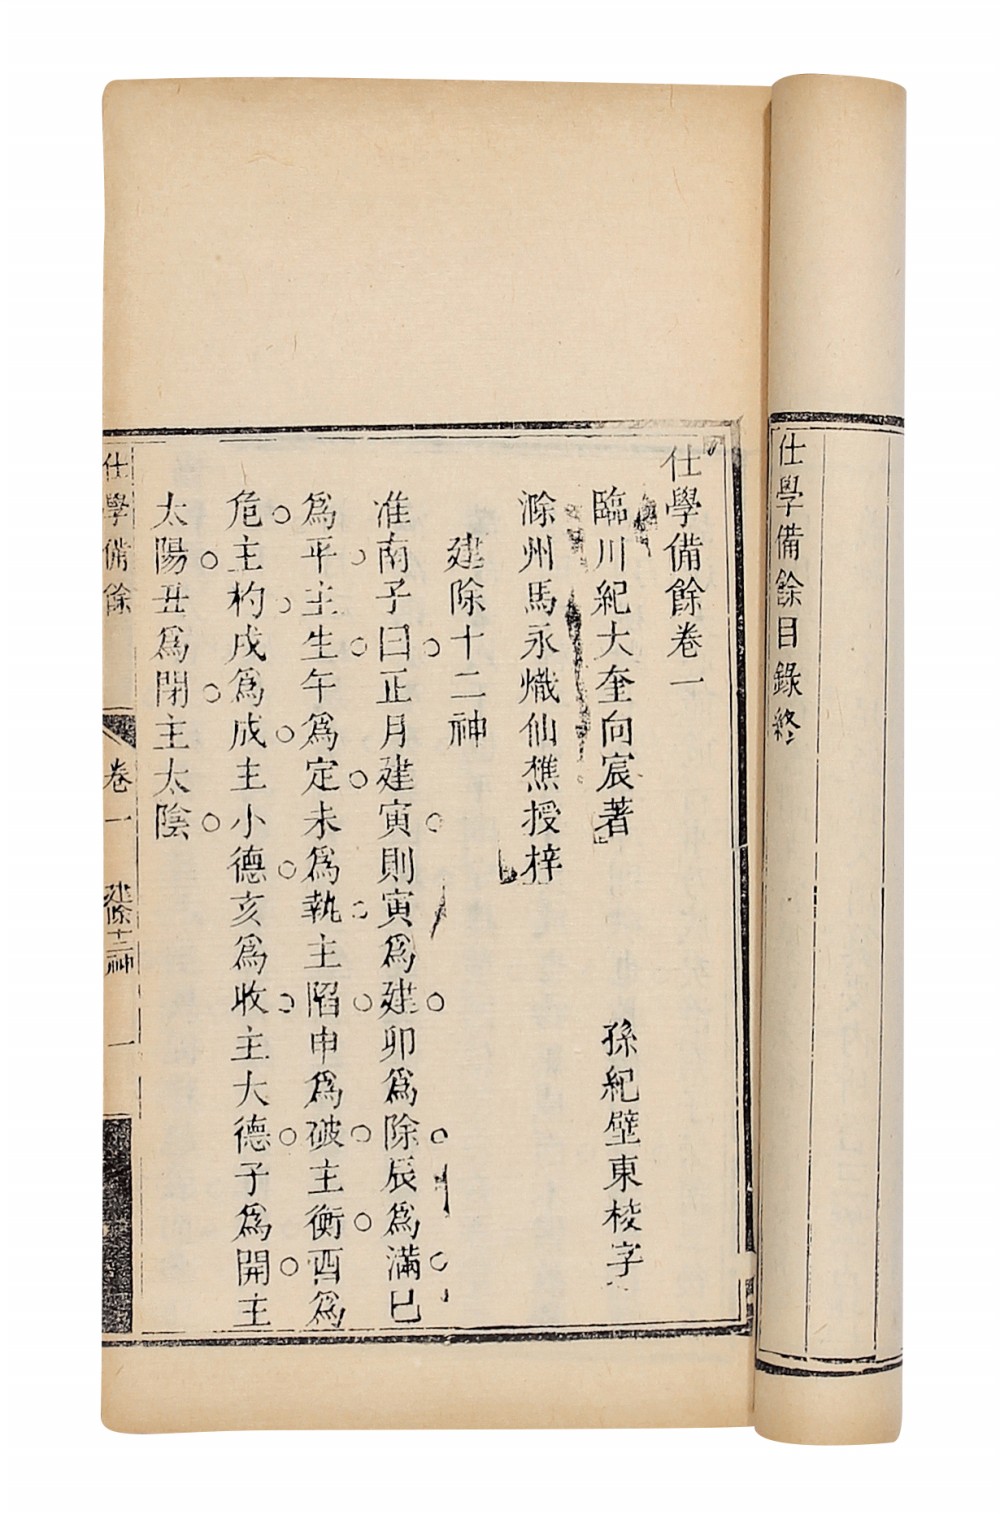 仕學備餘目錄終
仕學備餘卷一
臨川紀大奎向宸著　孫紀壁東棱字
滁州馬永熾仙樵授梓
建除十二神
准南子曰正月建寅則寅爲建卯爲除辰爲滿巳
爲平主生午爲定未爲執主陷申爲破主衡酉爲
危主杓戌爲成主小德亥爲收主大德子爲開主
太陽丑爲閉主太陰
仕學備餘　卷一　建除十二神　一